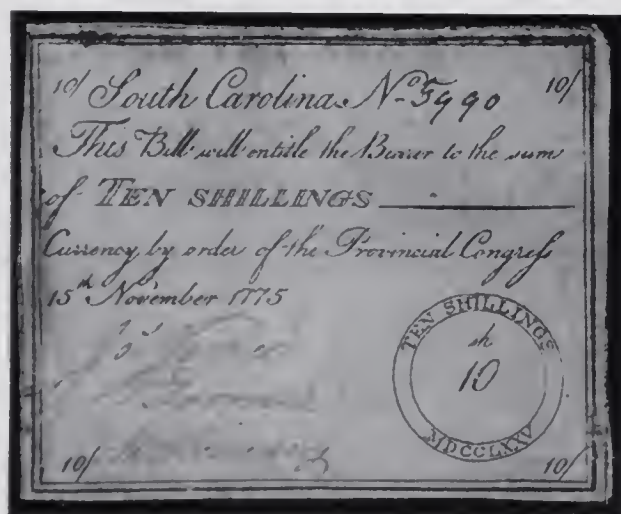 10/ South Carolina. No. 5990 10/
This Bill will entitle the Bearer to the sum
of TEN SHILLINGS
Currency by order of the Provincial Congress
15th November 1775
TEN SHILLINGS
sh
10
MDCCLXXV
10/ 10/